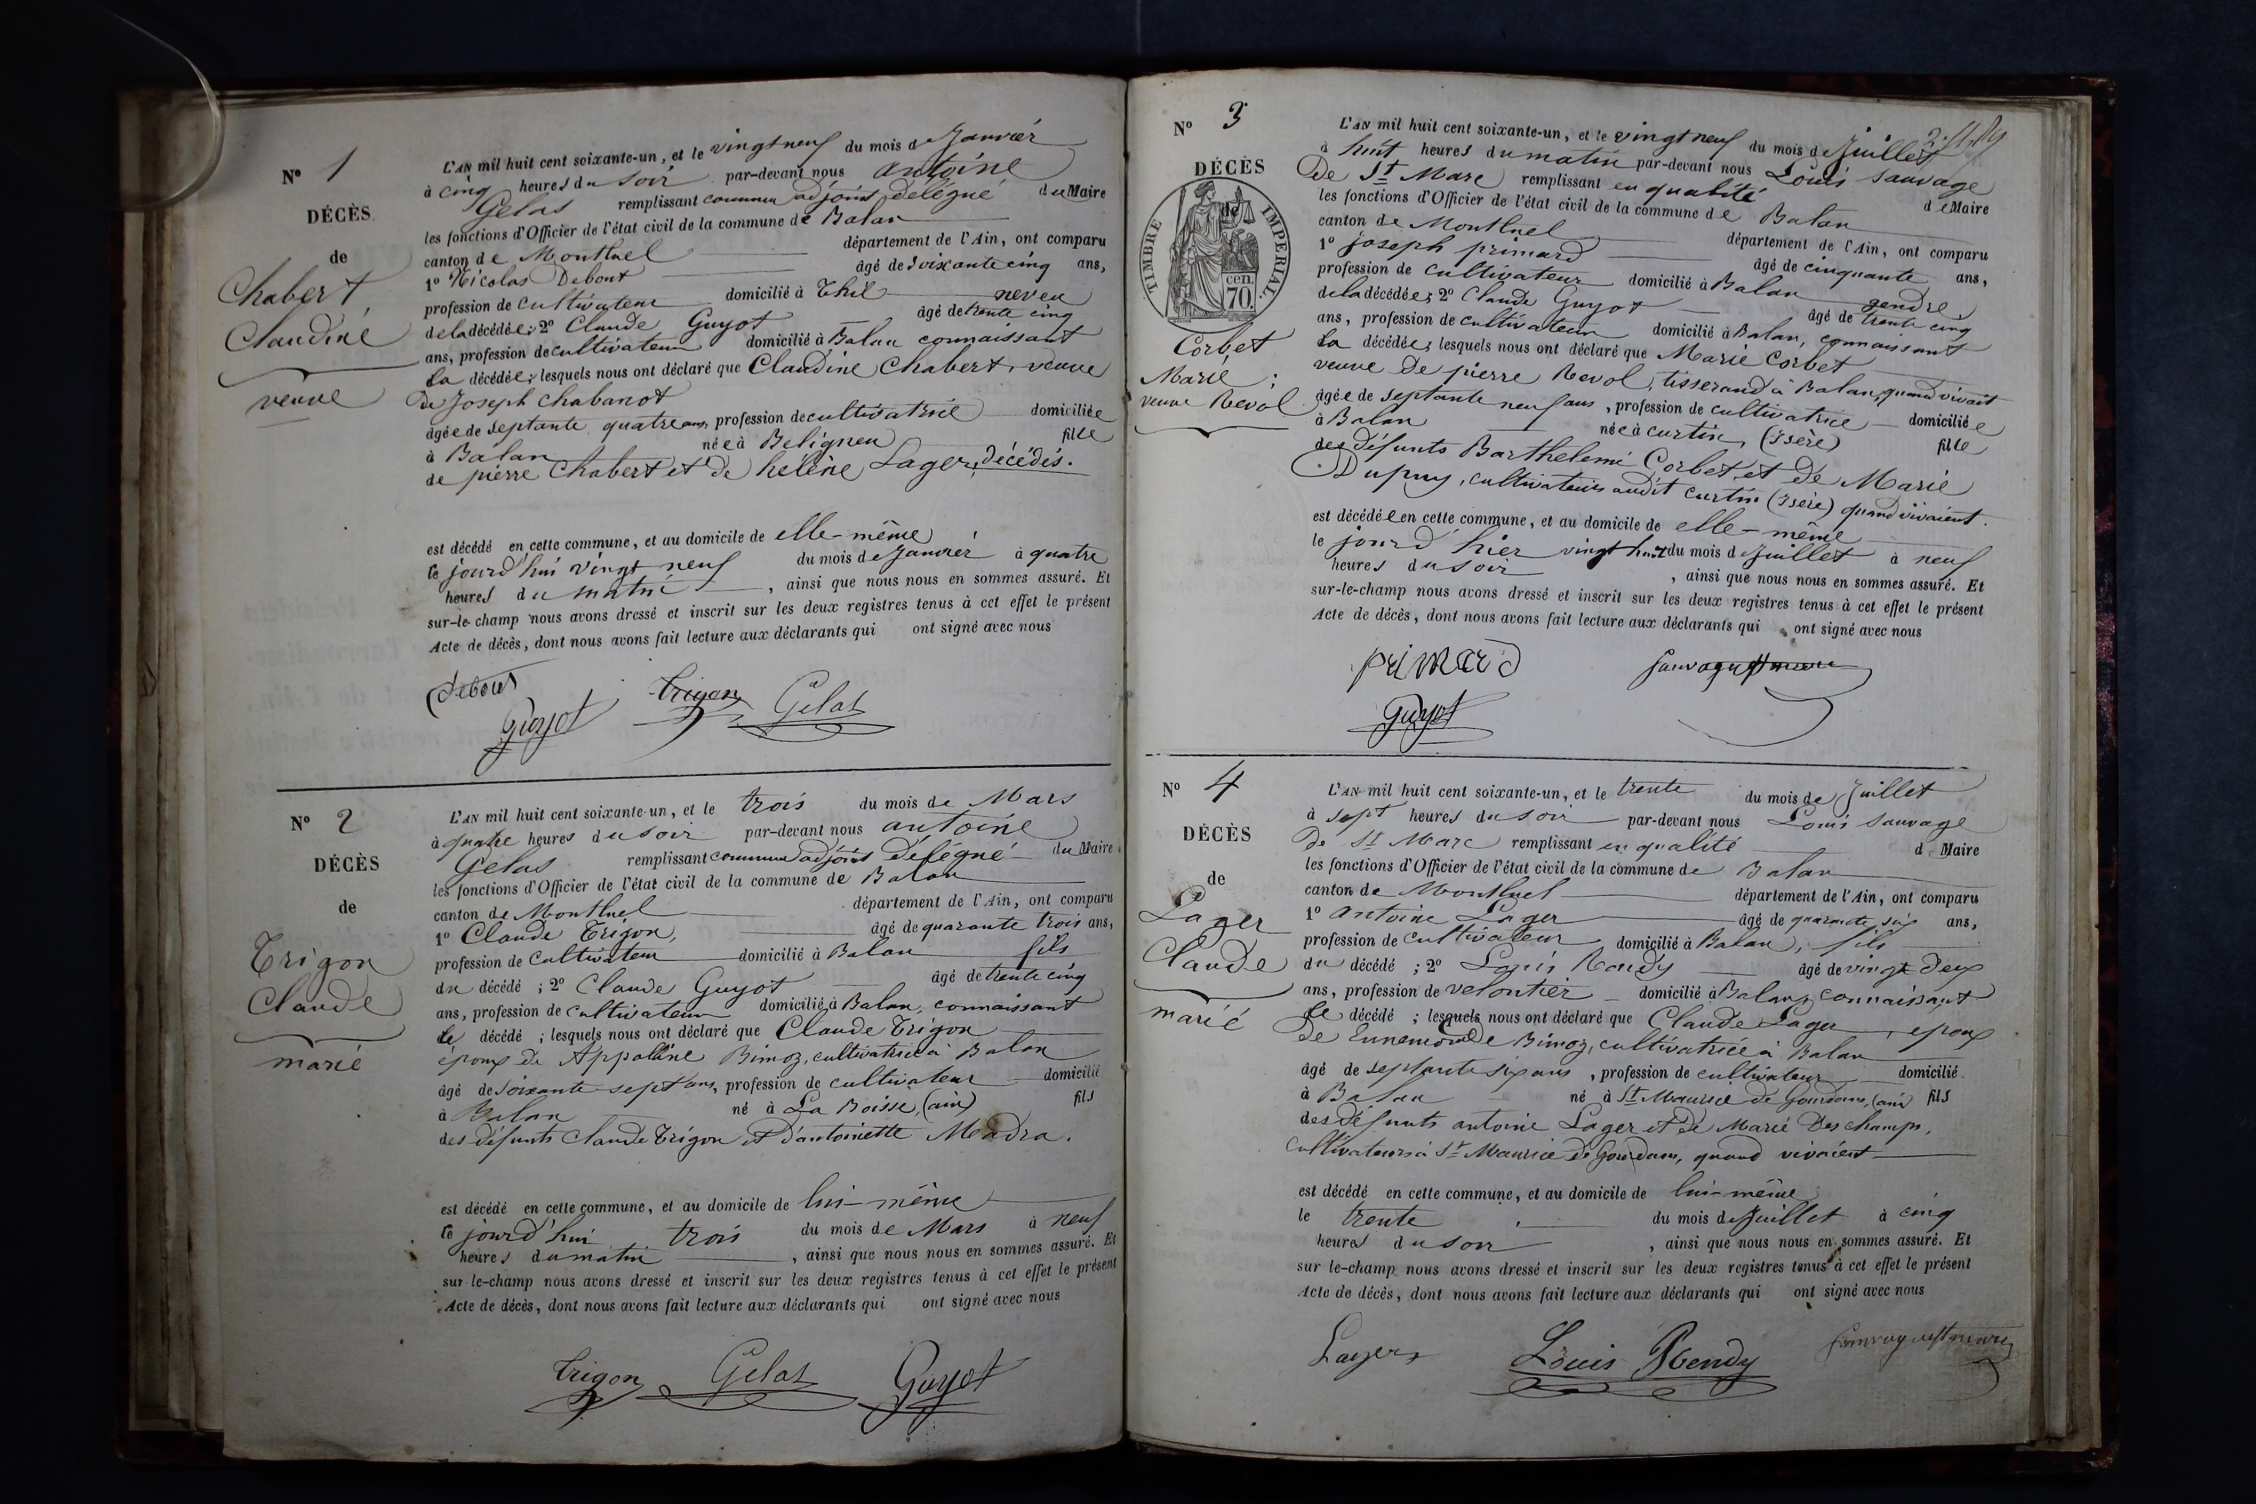 N° 1
DÉCÈS
de
Chabert
Claudine
veuve
L'AN mil huit cent soixante-un, et le vingt neuf du mois de Janvier
à cinq heures du soir par-devant nous antoine
Gelas remplissant comme adjoint délégué du Maire
les fonctions d'Officier de l'état civil de la commune de Balan
canton de Montluel département de l'Ain, ont comparu
1° Nicolas Debout âgé de soixante cinq ans,
profession de cultivateur domicilié à Thil neveu
de la décédée; 2° Claude Guyot âgé de trente cinq
ans, profession de cultivateur domicilié à Balan connaissant
la décédée; lesquels nous ont déclaré que Claudine Chabert, veuve
de Joseph Chabanot
âgée de septante quatre ans, profession de cultivatrice domiciliée
à Balan née à Beligneu fille
de pierre Chabert et de helène Lager, décédés.
est décédé en cette commune, et au domicile de elle-même
le jourd'hui vingt neuf du mois de Janvier à quatre
heures du matin, ainsi que nous nous en sommes assuré. Et
sur-le-champ nous avons dressé et inscrit sur les deux registres tenus à cet effet le présent
Acte de décès, dont nous avons fait lecture aux déclarants qui ont signé avec nous
debout Trigon Gelas
Guyot
N° 2
DÉCÈS
de
Trigon
Claude
marié
L'AN mil huit cent soixante-un, et le trois du mois de Mars
à quatre heures du soir par-devant nous antoine
Gelas remplissant comme adjoint délégué du Maire
les fonctions d'Officier de l'état civil de la commune de Balan
canton de Montluel département de l'Ain, ont comparu
1° Claude Trigon, âgé de quarante trois ans,
profession de cultivateur domicilié à Balan fils
du décédé ; 2° Claude Guyot âgé de trente cinq
ans, profession de cultivateur domicilié à Balan, connaissant
le décédé ; lesquels nous ont déclaré que Claude Trigon
époux de Appoline Bimoz, cultivatrice à Balan
âgé de soixante sept ans, profession de cultivateur domicilié
à Balan né à La Boisse, (ain) fils
des défunts Claude Trigon et d'antoinette Meadra.
est décédé en cette commune, et au domicile de lui-même
le jourd'hui trois du mois de Mars à neuf
heures du matin, ainsi que nous nous en sommes assuré. Et
sur le-champ nous avons dressé et inscrit sur les deux registres tenus à cet effet le présent
Acte de décès, dont nous avons fait lecture aux déclarants qui ont signé avec nous
Trigon Gelas Guyot
N° 3
DÉCÈS
de
TIMBRE IMPERIAL.
70 cen.
Corbet
Marie;
veuve Revol
L'AN mil huit cent soixante-un, et le vingt neuf du mois de Juillet
à huit heures du matin par-devant nous Louis Sauvage
De St Marc remplissant en qualité de Maire
les fonctions d'Officier de l'état civil de la commune de Balan
canton de Montluel département de l'Ain, ont comparu
1° joseph primard âgé de cinquante ans,
profession de cultivateur domicilié à Balan gendre
de la décédée; 2° Claude Guyot âgé de trente cinq
ans, profession de cultivateur domicilié à Balan, connaissant
la décédée; lesquels nous ont déclaré que Marie Corbet
veuve de pierre Revol, tisserand à Balan, quand vivait
âgée de septante neuf ans, profession de cultivatrice domiciliée
à Balan née à Curtin, (Isère) fille
des défunts Barthelemi Corbet et De Marie
Dupuy, cultivateurs audit Curtin (Isère) quand vivaient.
est décédée en cette commune, et au domicile de elle-même
le jourd'hier vingt huit du mois de Juillet à neuf
heures du soir, ainsi que nous nous en sommes assuré. Et
sur-le-champ nous avons dressé et inscrit sur les deux registres tenus à cet effet le présent
Acte de décès, dont nous avons fait lecture aux déclarants qui ont signé avec nous
primard
Guyot
N° 4
DÉCÈS
de
Lager
Claude
marié
L'AN mil huit cent soixante-un, et le trente du mois de Juillet
à sept heures du soir par-devant nous Louis Sauvage
De St Marc remplissant en qualité d Maire
les fonctions d'Officier de l'état civil de la commune de Balan
canton de Montluel département de l'Ain, ont comparu
1° Antoine Lager âgé de quarante six ans,
profession de cultivateur domicilié à Balan, fils
du décédé ; 2° Louis Rendy âgé de vingt deux
ans, profession de veloutier domicilié à Balan, connaissant
le décédé ; lesquels nous ont déclaré que Claude Lager, epoux
De Ennemonde Bimoz, cultivatrice à Balan
âgé de septante six ans, profession de cultivateur domicilié
à Balan né à St Maurice de Gourdans, (ain) fils
des défunts antoine Lager et de Marie Deschamps,
cultivateurs à St Maurice de Gourdans, quand vivaient
est décédé en cette commune, et au domicile de lui-même
le trente du mois de Juillet à cinq
heures du soir, ainsi que nous nous en sommes assuré. Et
sur le-champ nous avons dressé et inscrit sur les deux registres tenus à cet effet le présent
Acte de décès, dont nous avons fait lecture aux déclarants qui ont signé avec nous
Lager Louis Rendy